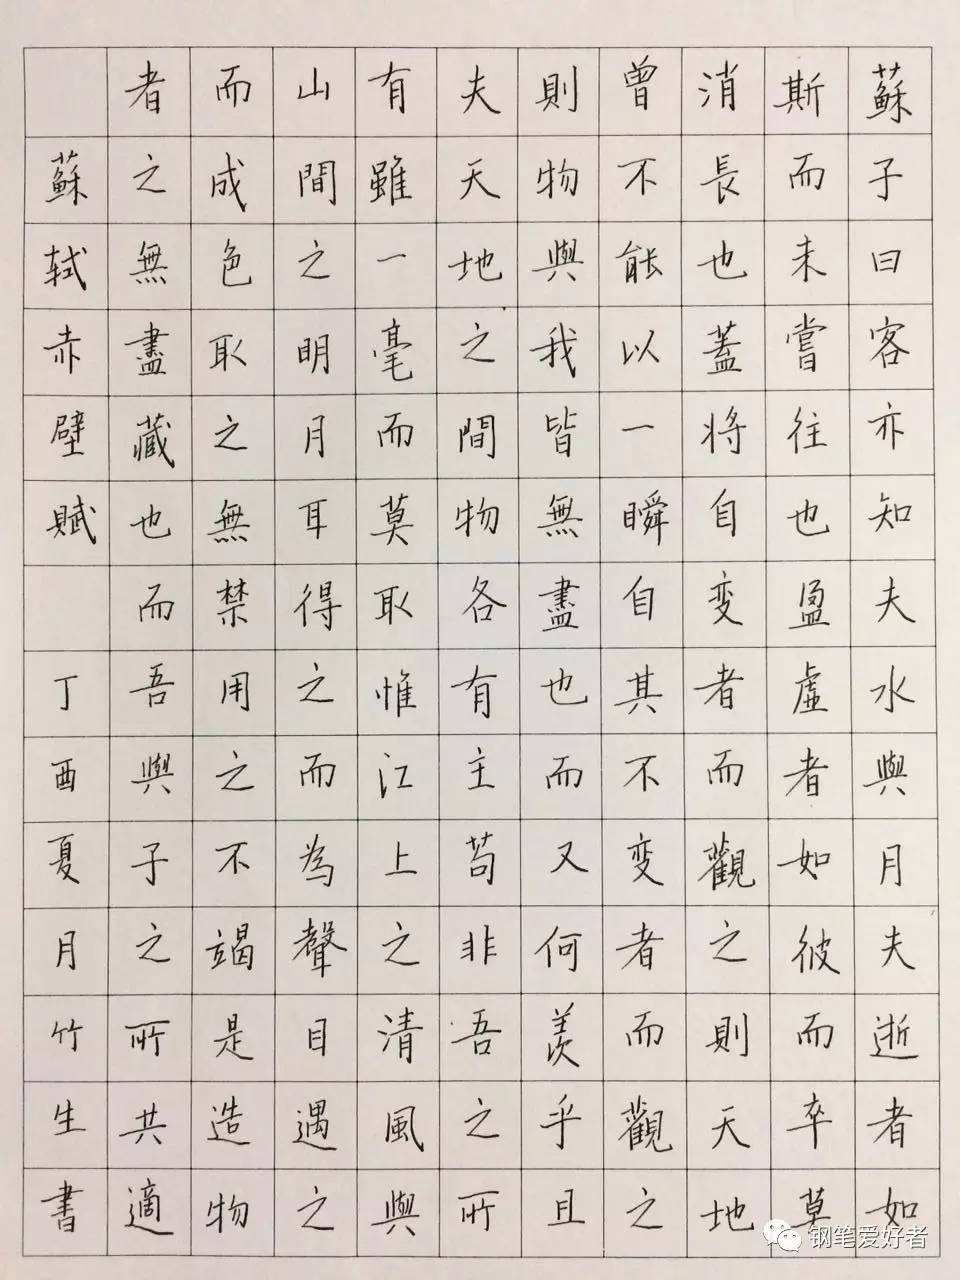 蘇子曰客亦知夫水與月夫逝者如
斯而未嘗往也盈虛者如彼而卒莫
消長也蓋将自变者而觀之則天地
曾不能以一瞬自其不变者而觀之
則物與我皆無盡也而又何羨乎且
夫天地之間物各有主苟非吾之所
有雖一毫而莫取惟江上之清風與
山間之明月耳得之而為聲目遇之
而成色取之無禁用之不竭是造物
者之無盡藏也而吾與子之所共適
蘇轼赤壁賦 丁酉夏月竹生書
钢笔爱好者